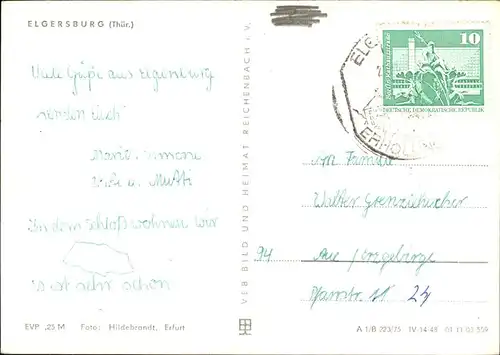 ELGERSBURG (Thür.)
Viele Grüße aus Elgersburg
senden Euch
Mario, Simone
u. Mutti
In dem Schloß wohnen wir
Es ist sehr schön
EVP ,25 M Foto: Hildebrandt, Erfurt
VEB BILD UND HEIMAT REICHENBACH i.V.
10
DEUTSCHE DEMOKRATISCHE REPUBLIK
An Familie
Walter
94 Aue / Erzgebirge
Pfarrstr. 24
A 1/B 223/75 IV-14-48 01 13 02 559